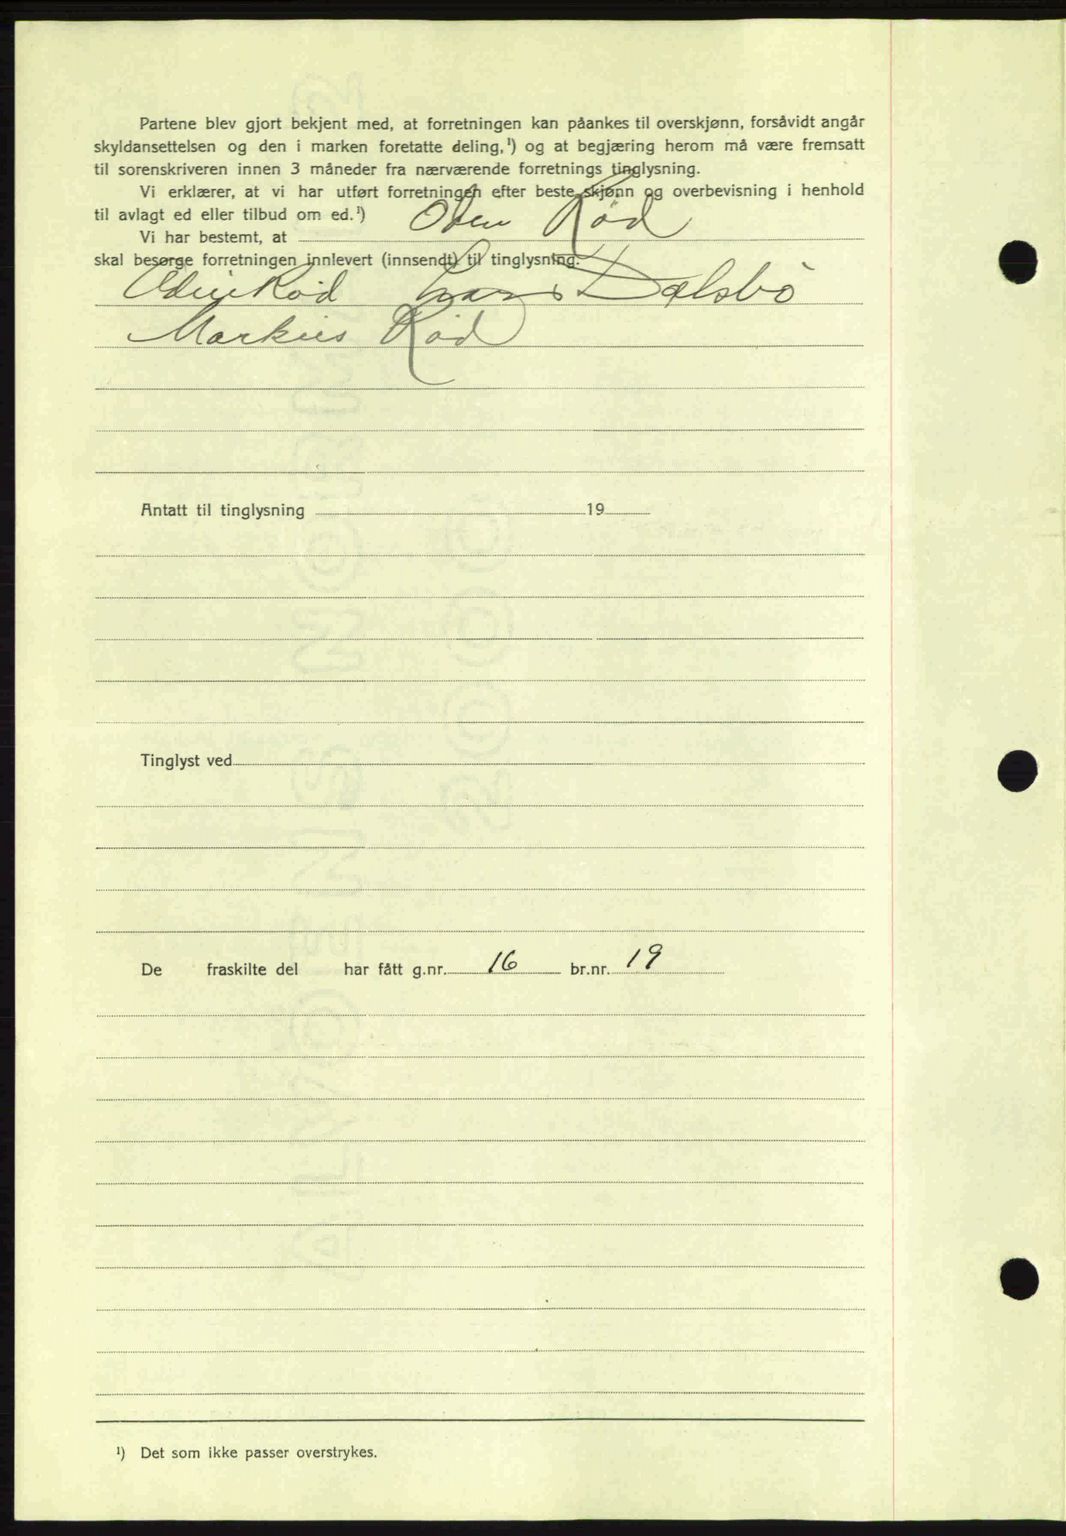 Partene blev gjort bekjent med, at forretningen kan påankes til overskjønn, forsåvidt angår
skyldansettelsen og den i marken foretatte deling,¹) og at begjæring herom må være fremsatt
til sorenskriveren innen 3 måneder fra nærværende forretnings tinglysning.
Vi erklærer, at vi har utført forretningen efter beste skjønn og overbevisning i henhold
til avlagt ed eller tilbud om ed.¹)
Vi har bestemt, at Odin Rød
skal besørge forretningen innlevert (innsendt) til tinglysning.
Odin Rød Hans Dalsbö
Markus Rød
Antatt til tinglysning 19
Tinglyst ved
De fraskilte del har fått g.nr. 16 br.nr. 19
¹) Det som ikke passer overstrykes.